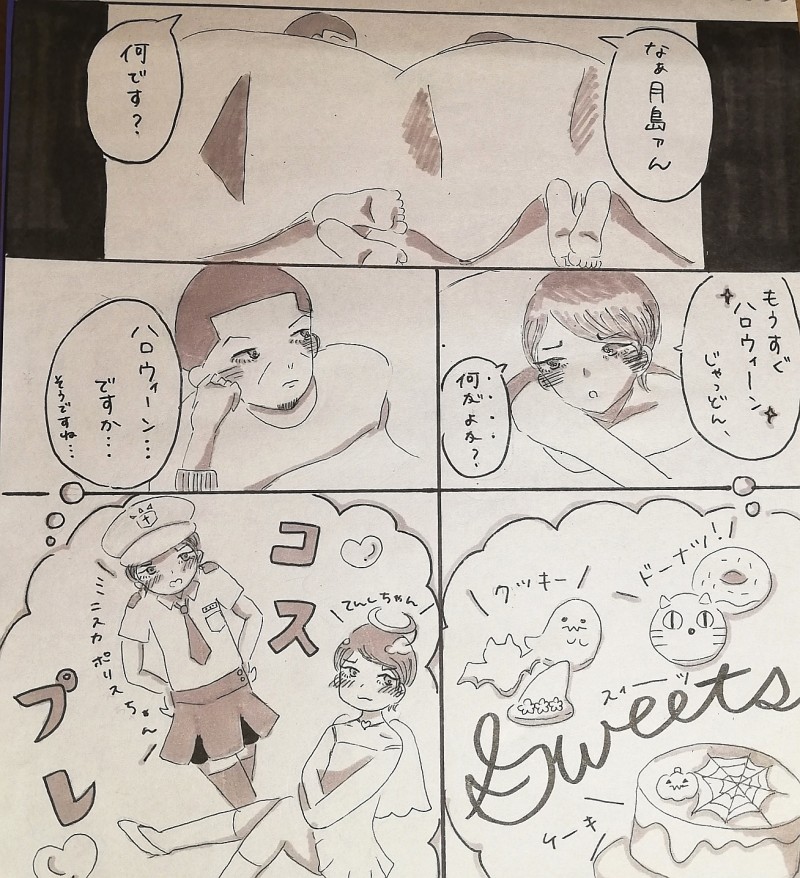 なぁ月島ァん
何です？
もうすぐ
ハロウィーン
じゃっどん、
何だよな？
ハロウィーン…
ですか…
そうですね…
クッキー
ドーナツ！
スイーツ
Sweets
ケーキ
コスプレ
ミニスカポリスちゃん
てんしちゃん